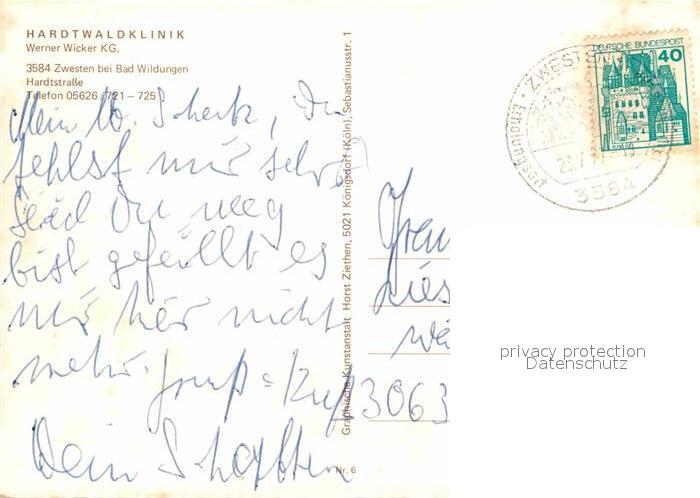 HARDTWALDKLINIK
Werner Wicker KG.
3584 Zwesten bei Bad Wildungen
Hardtstraße
Telefon 05626 / 721 – 725
Mein lb. Du
fehlst mir sehr
Seid Du weg
bist gefällt es
mir hier nicht
mehr. Gruß + Kuß
Dein
Graphische Kunstanstalt Horst Ziethen, 5021 Königsdorf (Köln), Sebastianusstr. 1
Nr. 6
DEUTSCHE BUNDESPOST
40
ZWESTEN
3584
3063
privacy protection
Datenschutz